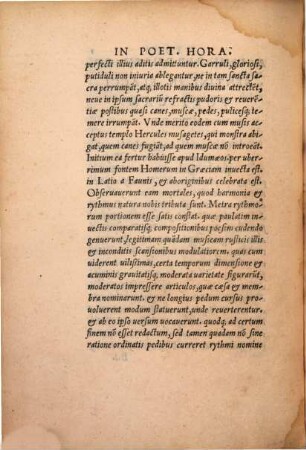 IN POET. HORA.
perfecti illius aditis admittuntur. Garruli, gloriosi,
putiduli non iniuria ablegantur, ne in tam sancta sa
cra perrumpāt, atq, illotis manibus diuina attrectēt,
neue in ipsum sacrariū refractis pudoris & reuerē
tiæ postibus quasi canes, muscæ, pedes, pulicesq; te=
mere irrumpāt. Vnde merito eodem cum musis ac
ceptus templo Hercules musagetes, qui monstra abi
gat, quem canes fugiāt, ad quem muscæ nō introēāt.
Initium ea fertur habuisse apud Idumæos, per ube
rimum fontem Homerum in Græciam inuecta est.
in Latio a Faunis, & aboriginibus celebrata est.
Obseruauerunt eam mortales, quod harmonia &
rythmus natura nobis tributa sunt. Metra rythmo
rum portionem esse satis constat. quæ paulatim in
uectis comparatisq; compositionibus poesim cudendo
genuerunt, legitimam quādam musicam rusticis illis
& inconditis scansionibus modulatiorem: quæ cum
uiderent utilissimas, certa temporum dimensione &
acuminis grauitatisq; moderata uarietate figurarūt,
moderatos impressere articulos, quæ cæsa & mem
bra nominarunt. & ne longius pedum cursus pro
uoluerent modum statuerunt, unde reuerterentur.
& ab eo ipso uersum uocauerunt. quodq, ad certum
finem nō esset redactum, sed tamen quadam nō sine
ratione ordinatis pedibus curreret rythmi nomine